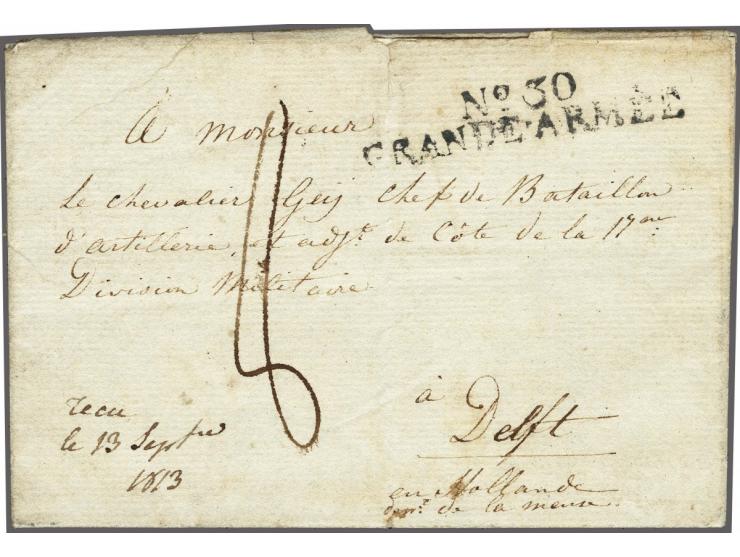 No 30
GRANDE·ARMÉE
A Monsieur
Le chevalier Geij Chef de Bataillon
d'artillerie, et adjt. de Côte de la 17me
Division Militaire
8
recu
le 13 Septre
1813
à
Delft
en Hollande
dept. de la meuse